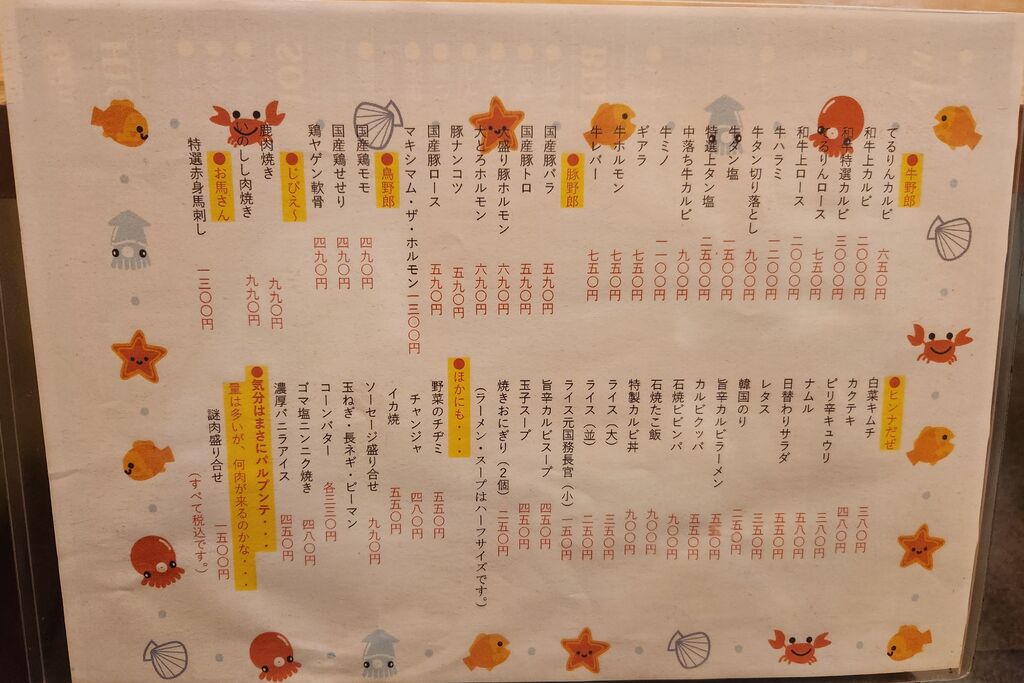 ●牛野郎
てるりんカルビ 六五〇円
和牛上カルビ 二〇〇〇円
和牛特選カルビ 三〇〇〇円
てるりんロース 七五〇円
和牛上ロース 二〇〇〇円
牛ハラミ 一二〇〇円
牛タン切り落とし 九〇〇円
牛タン塩 一五〇〇円
特選上タン塩 二五〇〇円
中落ち牛カルビ 九〇〇円
牛ミノ 一一〇〇円
ギアラ 七五〇円
牛ホルモン 七五〇円
牛レバー 七五〇円
●豚野郎
国産豚バラ 五九〇円
国産豚トロ 五九〇円
大盛り豚ホルモン 六九〇円
大とろホルモン 六九〇円
豚ナンコツ 五九〇円
国産豚ロース 五九〇円
マキシマム・ザ・ホルモン 一三〇〇円
●鳥野郎
国産鶏モモ 四九〇円
国産鶏せせり 四九〇円
鶏ヤゲン軟骨 四九〇円
●じびえ〜
鹿肉焼き 九九〇円
いのしし肉焼き 九九〇円
●お馬さん
特選赤身馬刺し 一三〇〇円
●ヒンナだぜ
白菜キムチ 三八〇円
カクテキ 四八〇円
ピリ辛キュウリ 三八〇円
ナムル 五八〇円
日替わりサラダ 五五〇円
レタス 三五〇円
韓国のり 二五〇円
旨辛カルビラーメン 五五〇円
カルビクッパ 五五〇円
石焼ビビンバ 九〇〇円
石焼たこ飯 九〇〇円
特製カルビ丼 九〇〇円
ライス（大） 三五〇円
ライス（並） 二五〇円
ライス元国務長官（小） 一五〇円
旨辛カルビスープ 四五〇円
玉子スープ 四五〇円
焼きおにぎり（2個） 二五〇円
（ラーメン・スープはハーフサイズです。）
●ほかにも・・・
野菜のチヂミ 五五〇円
チャンジャ 四八〇円
イカ焼 五五〇円
ソーセージ盛り合せ 九九〇円
玉ねぎ・長ネギ・ピーマン
コーンバター 各三三〇円
ゴマ塩ニンニク焼き 四八〇円
濃厚バニラアイス 四五〇円
●気分はまさにパルプンテ・・・
量は多いが、何肉が来るのかな・・・
謎肉盛り合せ 一五〇〇円
（すべて税込です。）